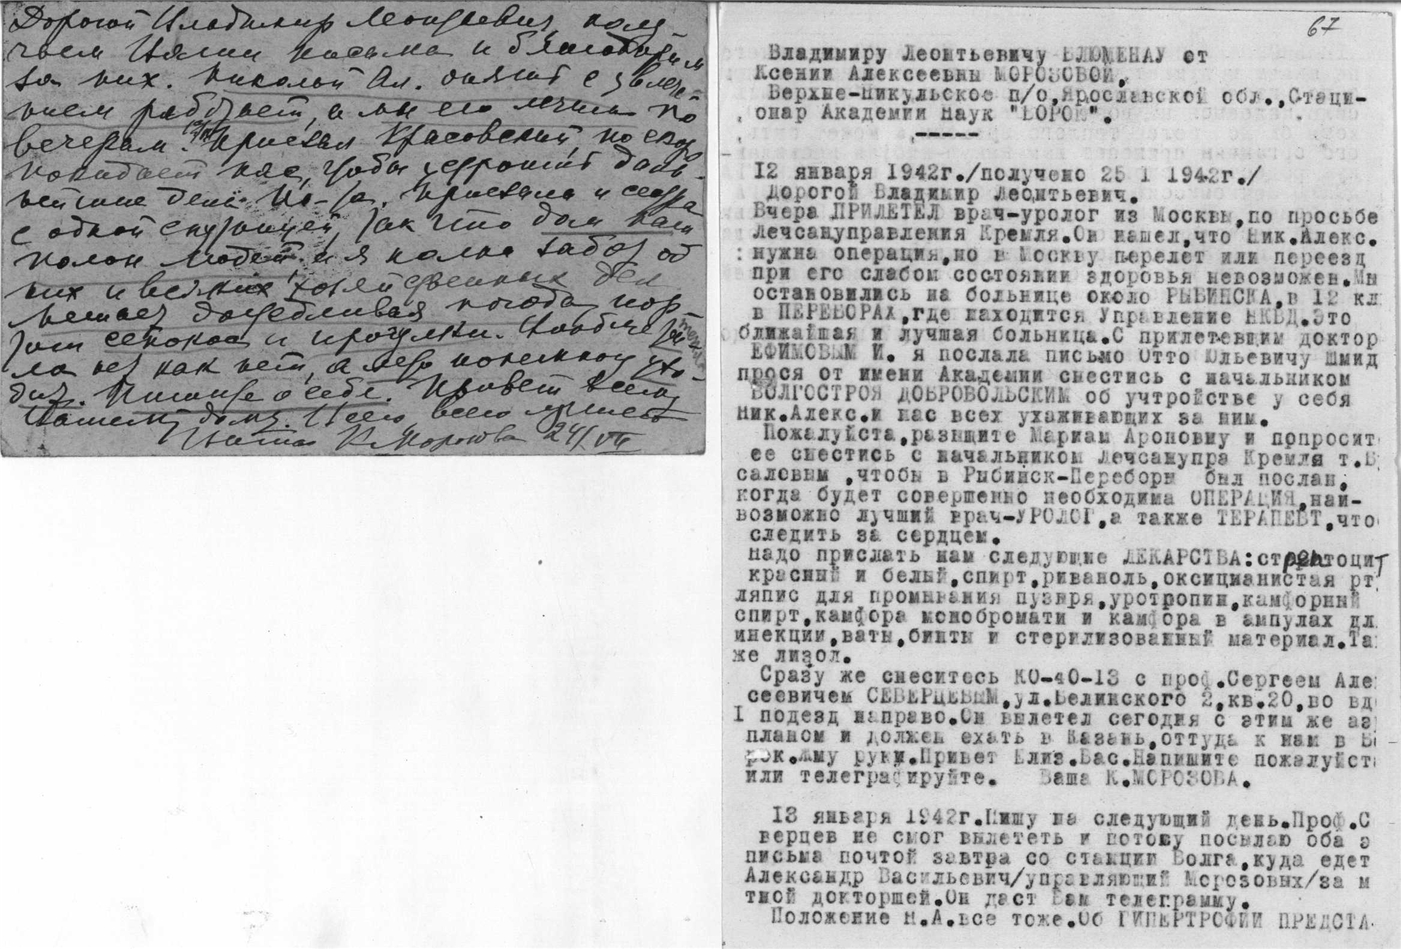 Дорогой Владимир Леонтьевич, полу
чаем Ваши письма и благодарим
за них. Николай Ал. опять с увлече
нием работает, а мы его лечим по
вечерам. Приехал Красовский, но скоро
покидает нас, чтобы устроить даль
нейшие дела. Приехала и сестра
с одной служащей, так что дом наш
полон людей и я полна забот об
них и всяких хозяйственных дел
Мешает дождливая погода, пор
тит сенокос и прогулки.
ла нет как нет, а лето понемногу ухо-
дит. Пишите о себе. Привет всему
Вашему дому. Всего всего лучшего
Ваша К. Морозова 24/VII
67
Владимиру Леонтьевичу БЛЮМЕНАУ от
Ксении Алексеевны МОРОЗОВОЙ,
Верхне-Никульское п/о, Ярославской обл., Стаци-
онар Академии Наук "БОРОК".
------
12 января 1942г./получено 25 1 1942г./
Дорогой Владимир Леонтьевич.
Вчера ПРИЛЕТЕЛ врач-уролог из Москвы, по просьбе
Лечсануправления Кремля. Он нашел, что Ник.Алекс.
нужна операция, но в Москву перелет или переезд
при его слабом состоянии здоровья невозможен. Мы
остановились на больнице около РЫБИНСКА, в 12 кл
в ПЕРЕБОРАХ, где находится Управление НКВД. Это
ближайшая и лучшая больница. С прилетевшим доктор
ЕФИМОВЫМ И. я послала письмо Отто Юльевичу Шмид
прося от имени Академии снестись с начальником
ВОЛГОСТРОЯ ДОБРОВОЛЬСКИМ об учтройстве у себя
Ник.Алекс. и нас всех ухаживающих за ним.
Пожалуйста, разыщите Мариам Ароновну и попросит
ее снестись с начальником Лечсанупра Кремля т.Б
саловым , чтобы в Рыбинск-Переборы был послан,
когда будет совершенно необходима ОПЕРАЦИЯ, наи-
возможно лучший врач-УРОЛОГ, а также ТЕРАПЕВТ, что
следить за сердцем.
Надо прислать нам следующие ЛЕКАРСТВА: стрептоцит
красный и белый, спирт, риваноль, оксицианистая рт
ляпис для промывания пузыря, уротропин, камфорный
спирт, камфора монобромати и камфора в ампулах дл
инекции, ваты, бинты и стерилизованный материал. Та
же лизол.
Сразу же снеситесь К0-40-13 с проф. Сергеем Але
сеевичем СЕВЕРЦЕВЫМ, ул. Белинского 2, кв.20, во вд
I подезд направо. Он вылетел сегодня с этим же аэ
планом и должен ехать в Казань, оттуда к нам в Бо
рок. Жму руки. Привет Елиз.Вас. Напишите пожалуйст
или телеграфируйте. Ваша К.МОРОЗОВА.
13 января 1942г. Пишу на следующий день. Проф. С
верцев не смог вылететь и потому посылаю оба э
письма почтой завтра со станции Волга, куда едет
Александр Васильевич/управляющий Морозовых/за м
тной докторшей. Он даст Вам телеграмму.
Положение Н.А. все тоже. Об ГИПЕРТРОФИИ ПРЕДСТА